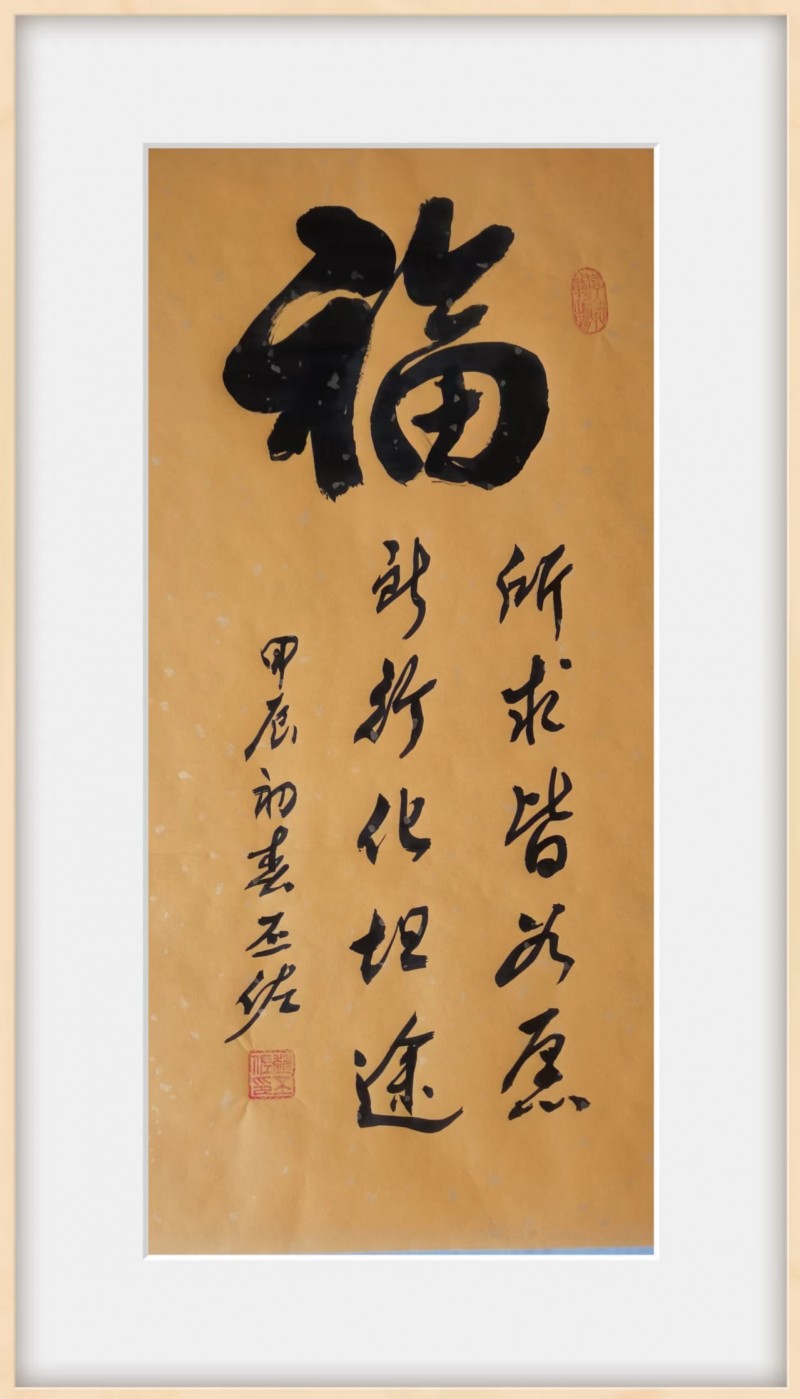 福
所求皆如愿
所行化坦途
甲辰初春丕佐